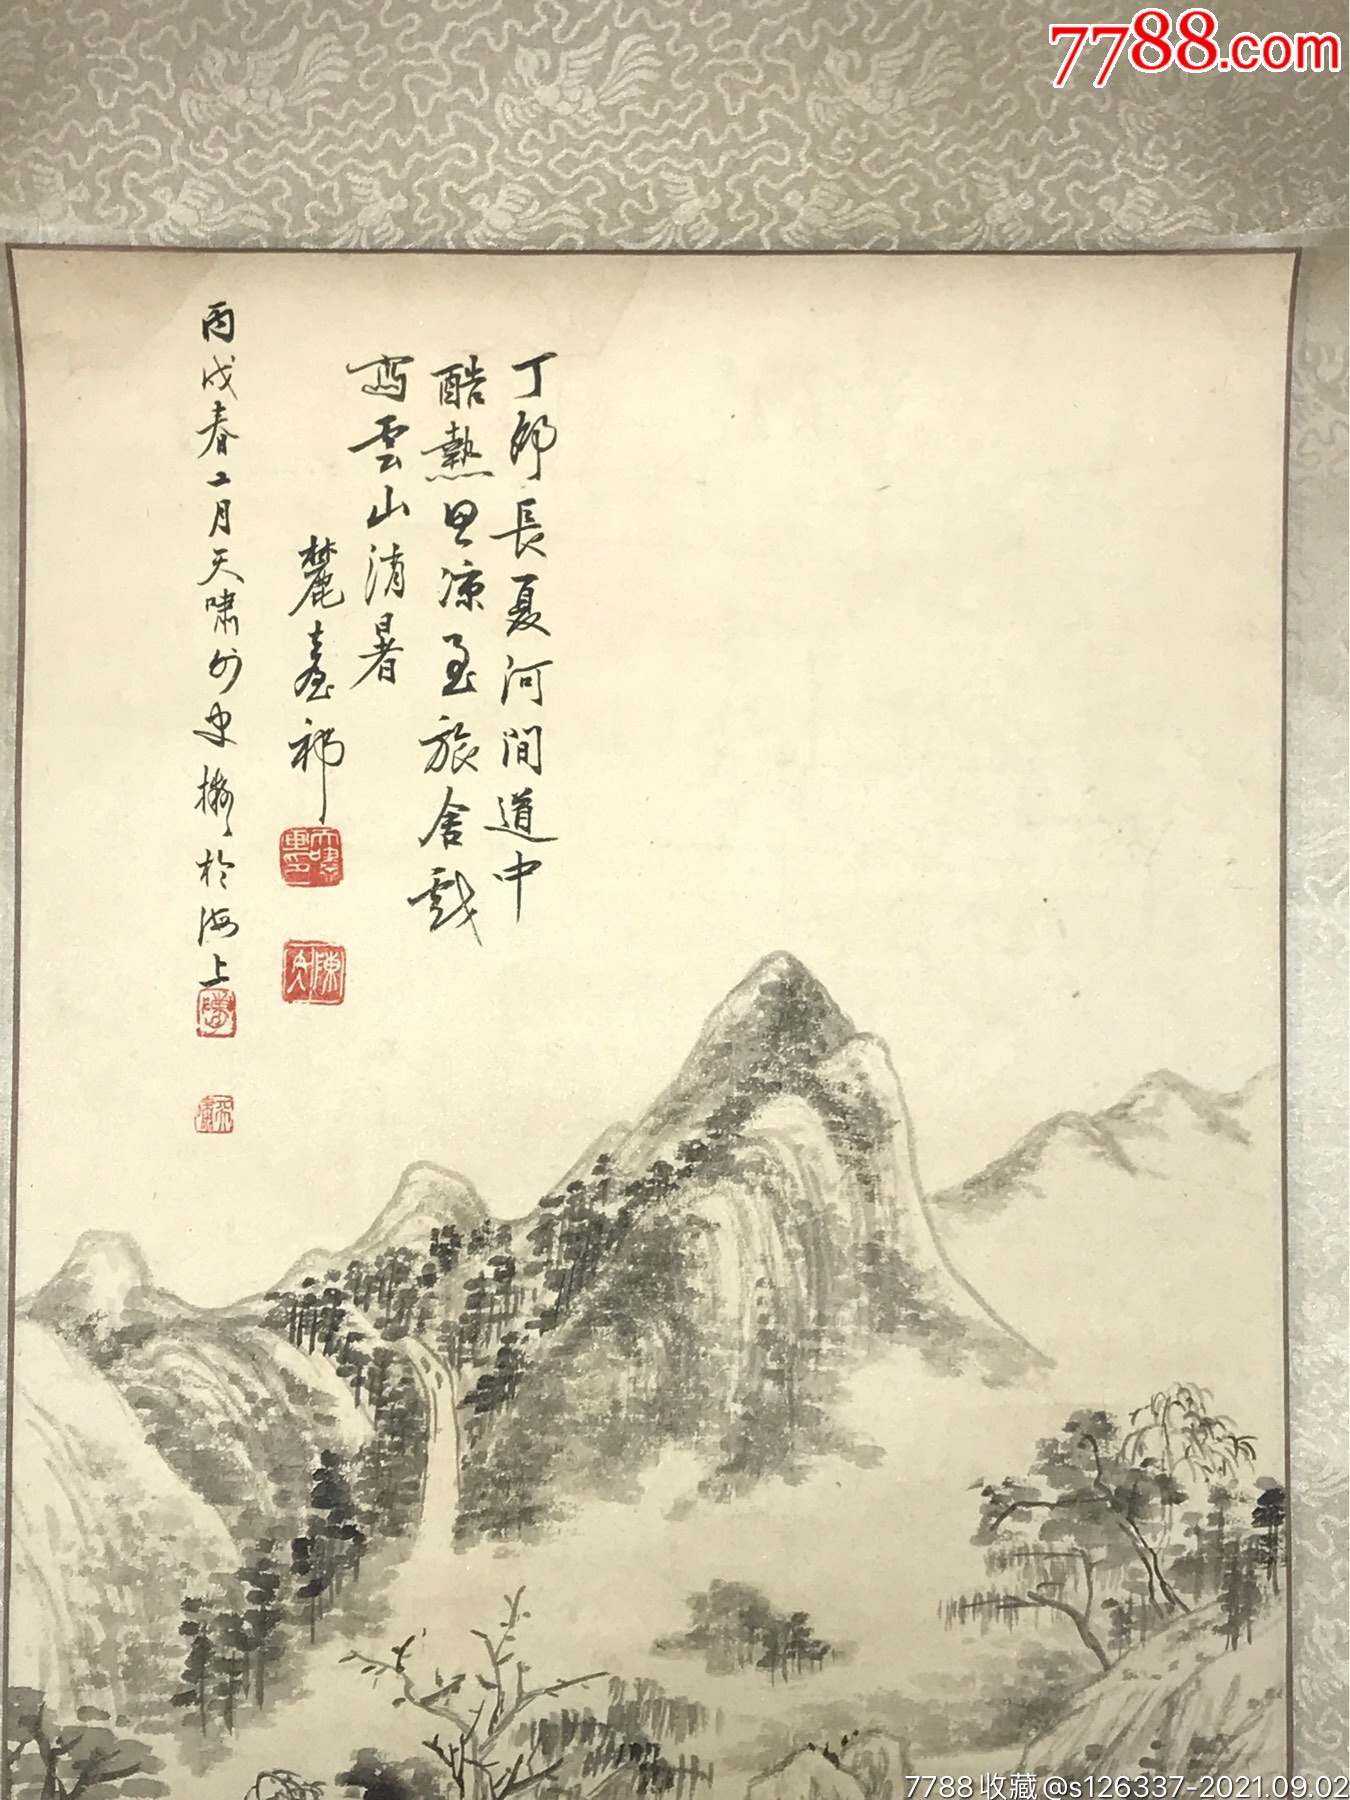 7788.com
丁卯長夏河間道中
酷熱思涼至旅舍戲
寫雲山消暑
麓臺祁
丙戌春二月天嘯外史撫於海上
7788收藏@s126337-2021.09.02